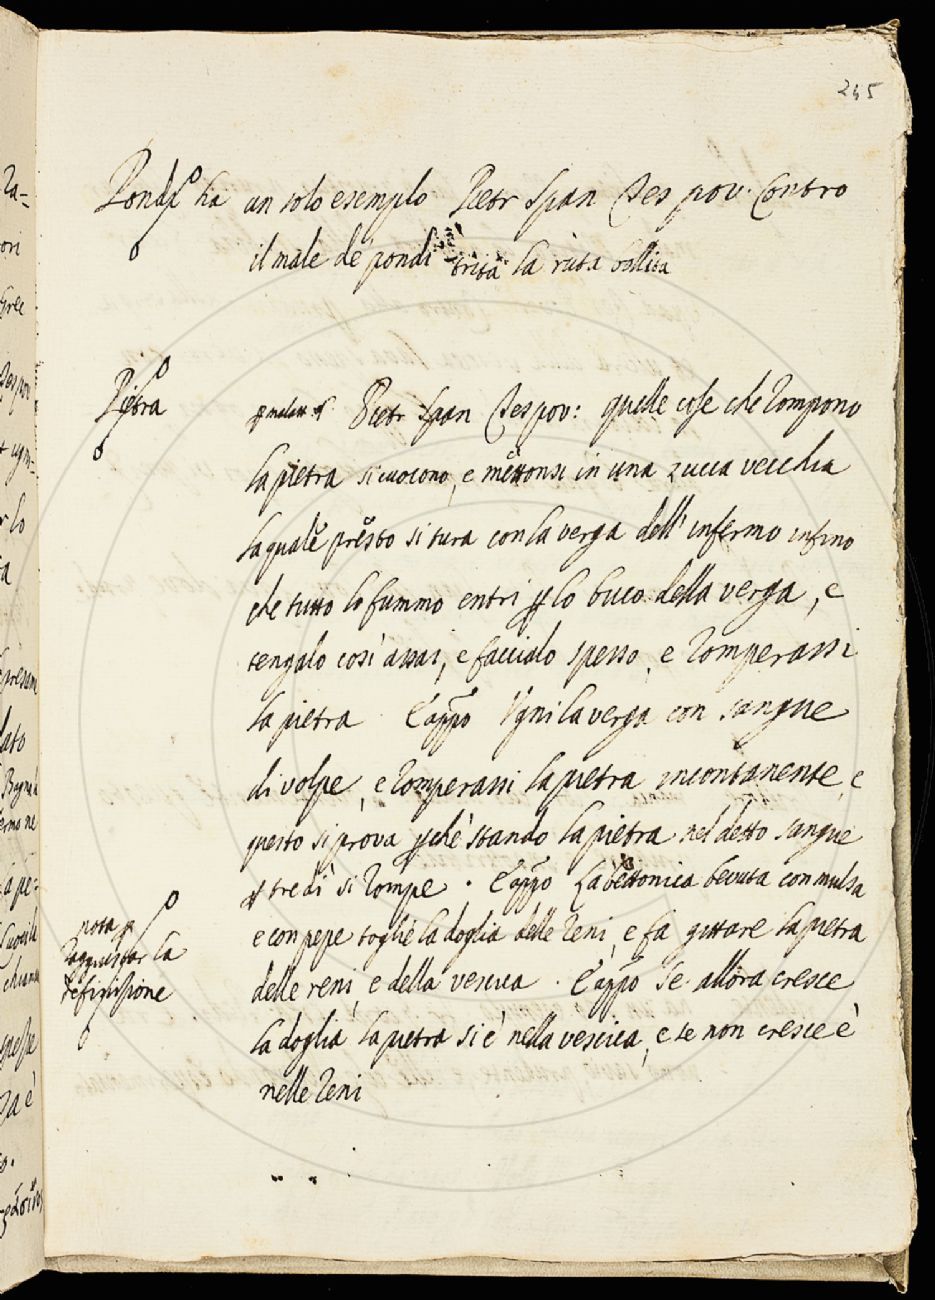 245
Pondi ha un solo esempio Pietr Span Tes pov. Contro
il male de pondi trita la ruta bollita
Pietra
Pietr Span Tes pov: quelle cose che rompono
la pietra si cuocono, e mettonsi in una zucca vecchia
la quale presto si tura con la verga dell' infermo infino
che tutto lo fummo entri p lo buco della verga, e
tengalo così assai, e facciolo spesso, e romperassi
la pietra E app̃o Ugni la verga con sangue
di volpe, e romperassi la pietra incontanente, e
questo si prova pchè stando la pietra nel detto sangue
p tre dì si rompe. E app̃o La bettonica bevuta con mulsa
e con pepe toglie la doglia delle reni, e fa gittare la pietra
delle reni, e della vescica. E app̃o Se allora cresce
la doglia la pietra si è nella vescica, e se non cresce è
nelle reni
nota p
raggiustar la
definizione